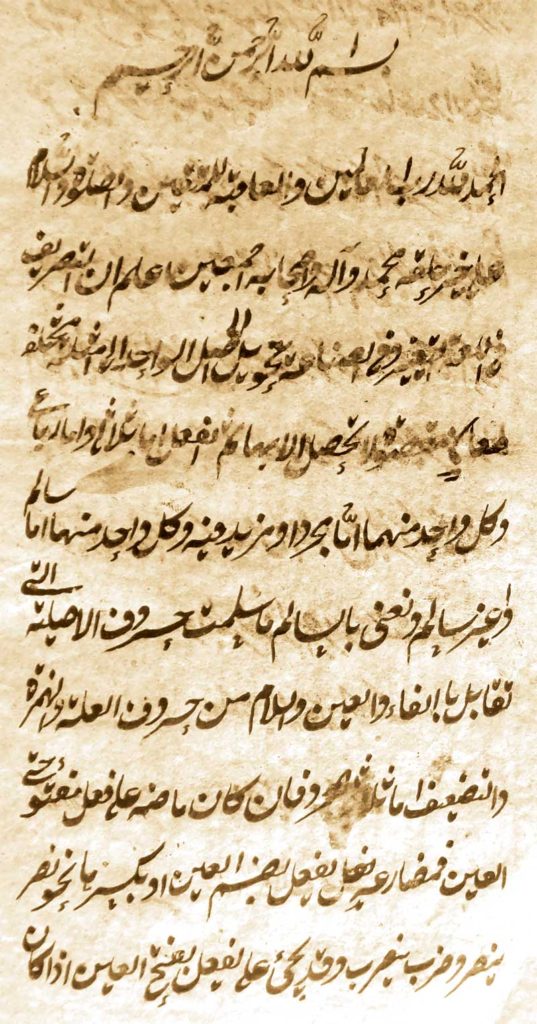 بسم الله الرحمن الرحيم
الحمد لله رب العالمين والعاقبة للمتقين والصلوة والسلام
على خير خلقه محمد وآله واصحابه اجمعين اعلم ان التصريف
في اللغة التغيير وفي الصناعة تحويل الاصل الواحد الى امثلة مختلفة
لمعان مقصودة لا يحصل الا بها ثم الفعل اما ثلاثي واما رباعي
وكل واحد منهما اما مجرد او مزيد فيه وكل واحد منهما اما سالم
او غير سالم ونعني بالسالم ما سلمت حروف الاصلية التي
تقابل بالفاء والعين واللام من حروف العلة والهمزة
والتضعيف اما ثلاثي المجرد فان كان ماضيه على فعل مفتوحي
العين فمضارعه يفعل بضم العين او بكسرها نحو نصر
ينصر وضرب يضرب وقد يجئ على يفعل بفتح العين اذا كان